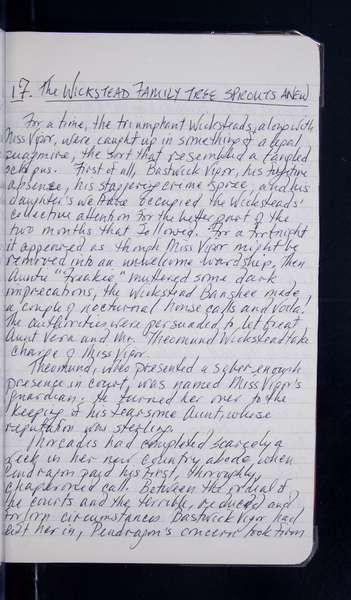 17. The Wickstead Family Tree Sprouts Anew
For a time, the triumphant Wicksteads, along with
Miss Vigor, were caught up in something of a legal
quagmire, the sort that resembled a tangled
octopus. First of all, Bastwick Vigor, his
absence, his staggering crime spree, and his
daughter's welfare occupied the Wicksteads'
collective attention for the better part of the
two months that followed. For a fortnight
it appeared as though Miss Vigor might be
removed into an unwelcome wardship, then
Auntie "Freakie" muttered some dark
imprecations, the Wickstead Banshee made
a couple of nocturnal house calls and voila!
The authorities were persuaded to let Great
Aunt Vera and Mr. Theomund Wickstead take
charge of Miss Vigor.
Theomund, who presented a sober enough
presence in court, was named Miss Vigor's
guardian. He turned her over to the
keeping of his fearsome Aunt, whose
reputation was sterling.
had completed scarcely a
week in her new country abode, when
Pendragon paid his first, thoroughly
chaperoned call. Between the ordeal of
the courts and the terrible, reduced and
forlorn circumstances Bastwick Vigor had
left her in, Pendragon's concern took firm